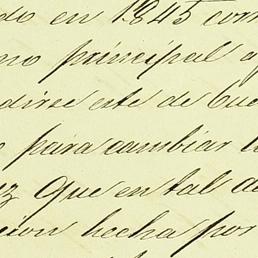 do en 1845 cor
mo principal a
dirse este de Cue
o para cambiar l
ez que en tal a
cion hecha por